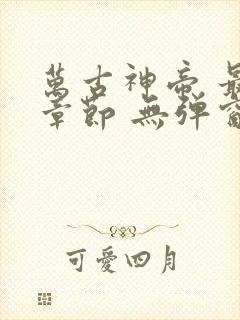 萬古神帝 最
章節 無彈窗
可愛四月